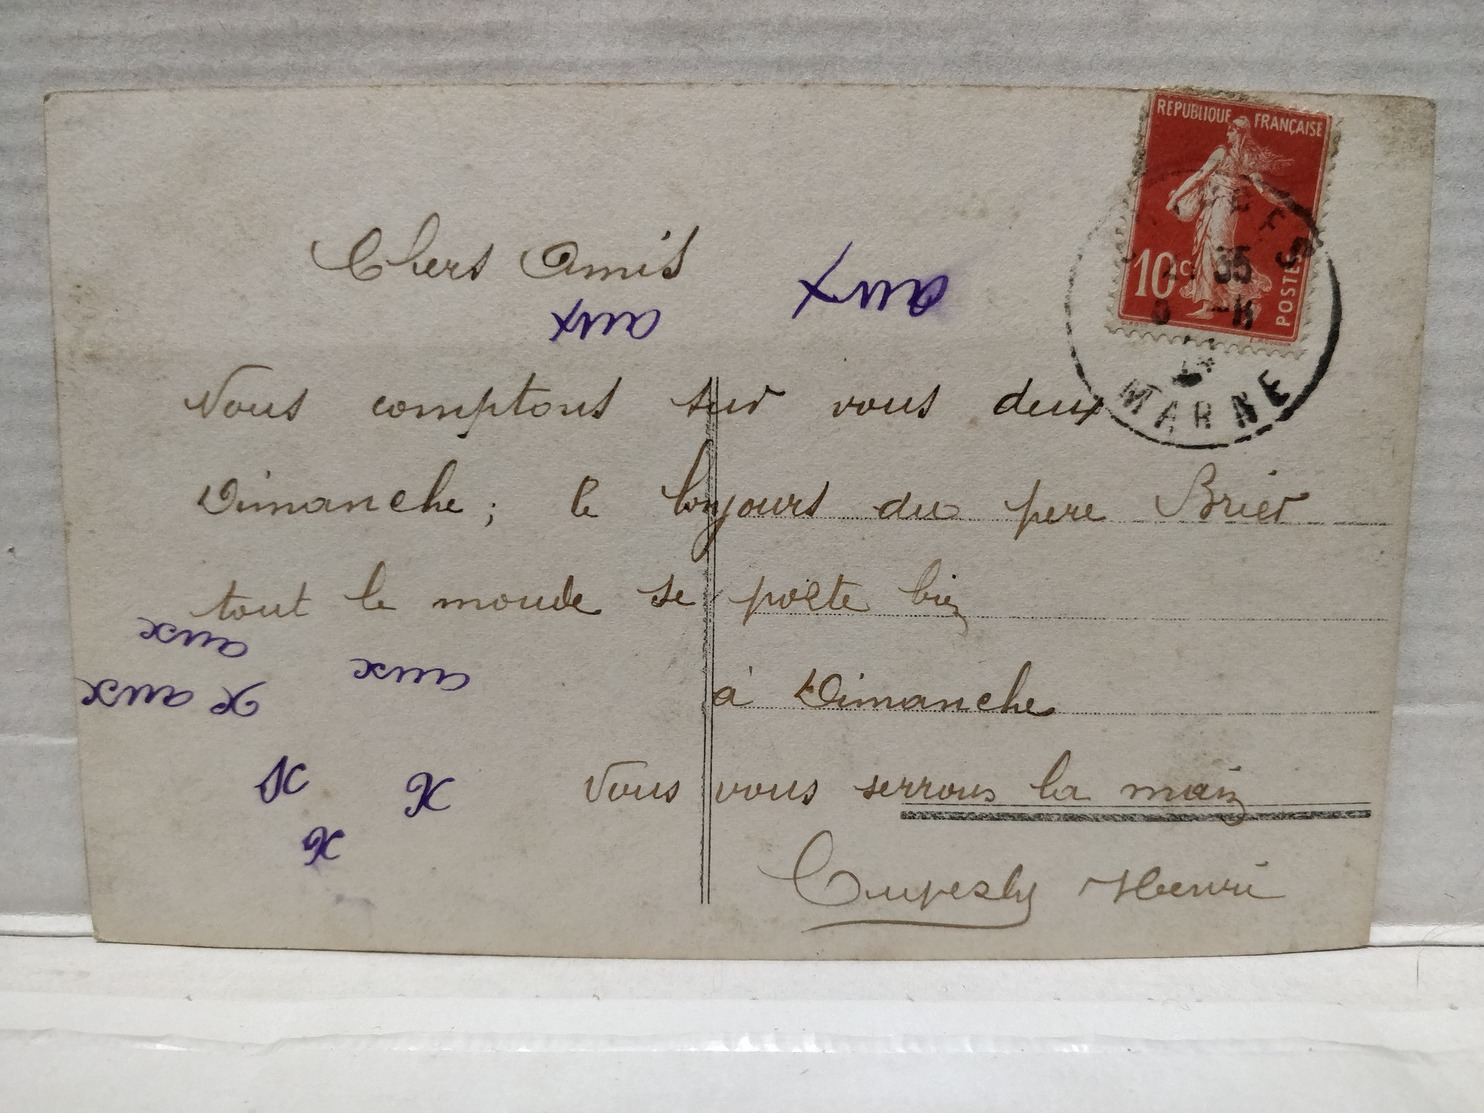 REPUBLIQUE FRANÇAISE
10c
POSTES
35
MARNE
Chers Amis
aux
aux
Nous comptons sur vous deux
Dimanche; le du pere
tout le monde se porte bien
aux
aux
x aux
à Dimanche
Nous vous serrons la main
x
x
x
Henri